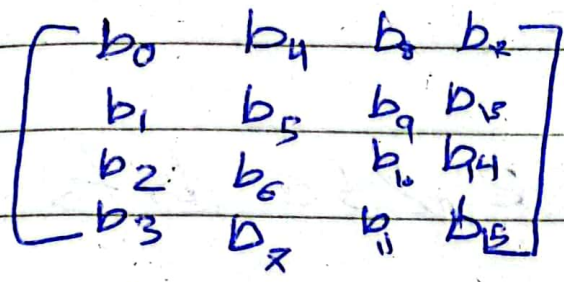 b₀ b₄ b₈ b₁₂
b₁ b₅ b₉ b₁₃
b₂ b₆ b₁₀ b₁₄
b₃ b₇ b₁₁ b₁₅